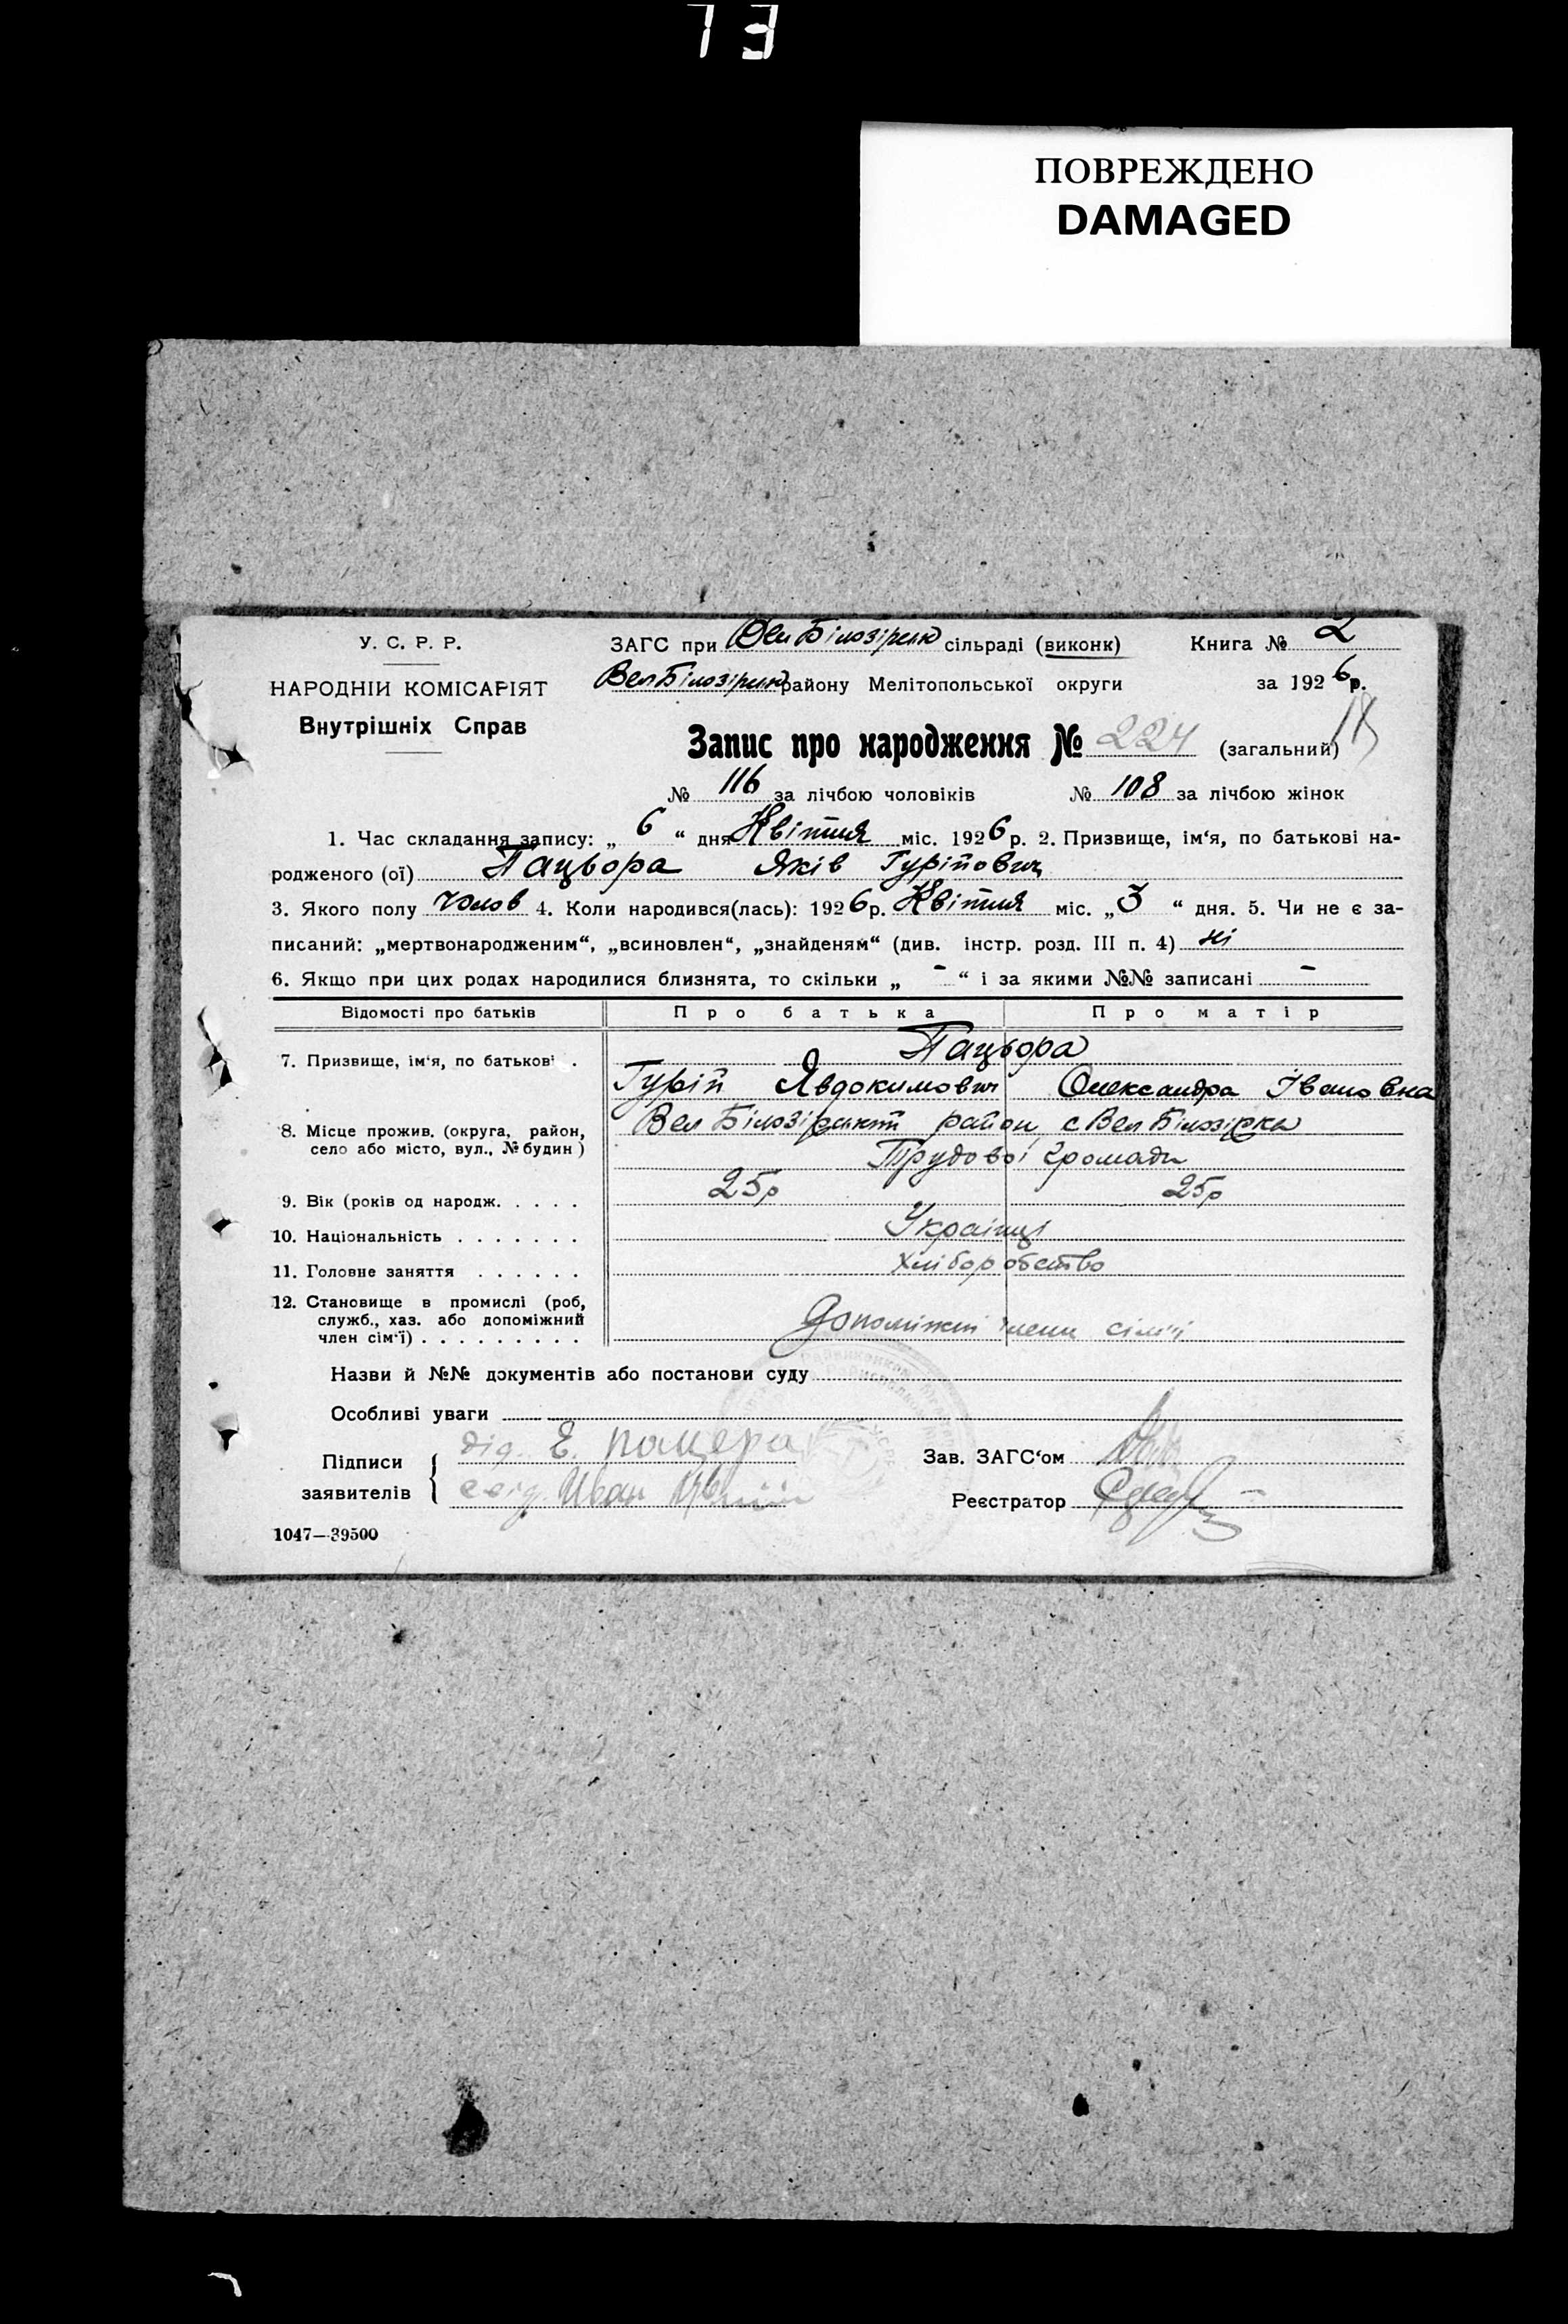 73
ПОВРЕЖДЕНО
DAMAGED
У. С. Р. Р.
НАРОДНІЙ КОМІСАРІЯТ
Внутрішніх Справ
ЗАГС при Вел Білозірськ сільраді (виконк) Книга № 2
Вел Білозірськ району Мелітопольської округи за 1926 р.
Запис про народження № 224 (загальний)
№ 116 за лічбою чоловіків № 108 за лічбою жінок
1. Час складання запису: „ 6 “ дня Квітня міс. 1926 р. 2. Призвище, ім‘я, по батькові на-
родженого (ої) Пацьора Яків Гурійович
3. Якого полу Чолов 4. Коли народився(лась): 1926 р. Квітня міс. „ 3 “ дня. 5. Чи не є за-
писаний: „мертвонародженим“, „всиновлен“, „знайденям“ (див. інстр. розд. III п. 4) ні
6. Якщо при цих родах народилися близнята, то скільки „ - “ і за якими №№ записані -
Відомості про батьків Про батька Про матір
7. Призвище, ім‘я, по батькові . Пацьора
Гурій Явдокимович Олександра Івановна
8. Місце прожив. (округа, район, село або місто, вул., № будин) Вел Білозірський район с Вел Білозірка
Трудової громади
9. Вік (років од народж. . . . . 25р 25р
10. Національність . . . . . . . Українці
11. Головне заняття . . . . . . Хліборобство
12. Становище в промислі (роб,
служб., хаз. або допоміжний
член сім‘ї) . . . . . . . . . Допоміжні члени сім'ї
Назви й №№ документів або постанови суду
Особливі уваги
Підписи
заявителів
дід. Е. пацера
свід. Иван
Зав. ЗАГС‘ом
Реєстратор
1047—39500